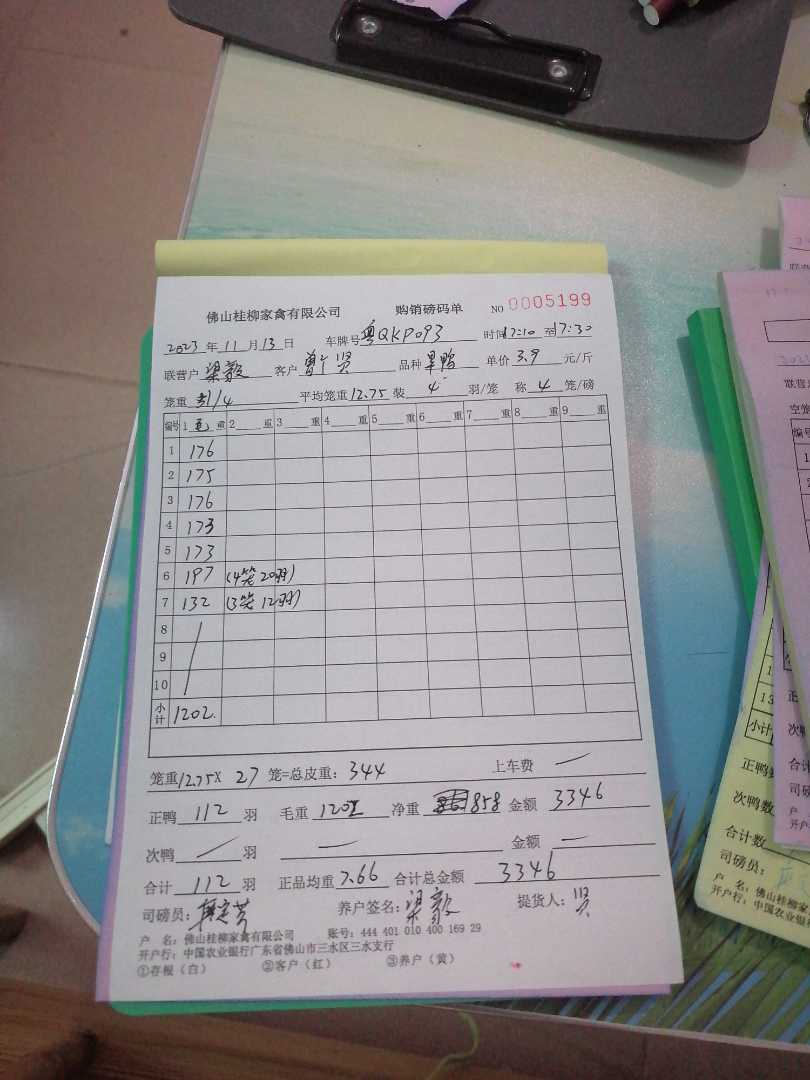 佛山桂柳家禽有限公司 购销磅码单 NO 0005199
2023年11月13日 车牌号粤QKP093 时间17:10至17:30
联营户 梁毅 客户 曾个贤 品种 旱鸭 单价 3.9 元/斤
笼重 51/4 平均笼重12.75 装 4 羽/笼 称 4 笼/磅
编号 1 毛 重 2 重 3 重 4 重 5 重 6 重 7 重 8 重 9 重
1 176
2 175
3 176
4 173
5 173
6 197 (4笼20羽)
7 132 (3笼12羽)
8
9
10
小计 1202.
笼重12.75X 27 笼=总皮重: 344 上车费 —
正鸭 112 羽 毛重 1202 净重 858 金额 3346
次鸭 / 羽 — 金额 —
合计 112 羽 正品均重 7.66 合计总金额 3346
司磅员: 养户签名: 梁毅 提货人: 贤
户 名: 佛山桂柳家禽有限公司 账号: 444 401 010 400 169 29
开户行: 中国农业银行广东省佛山市三水区三水支行
①存根(白) ②客户(红) ③养户(黄)
联营
空笼
编号
小计
正鸭数
次鸭数
合计数
司磅员:
户 名: 佛山桂柳
开户行: 中国农业银